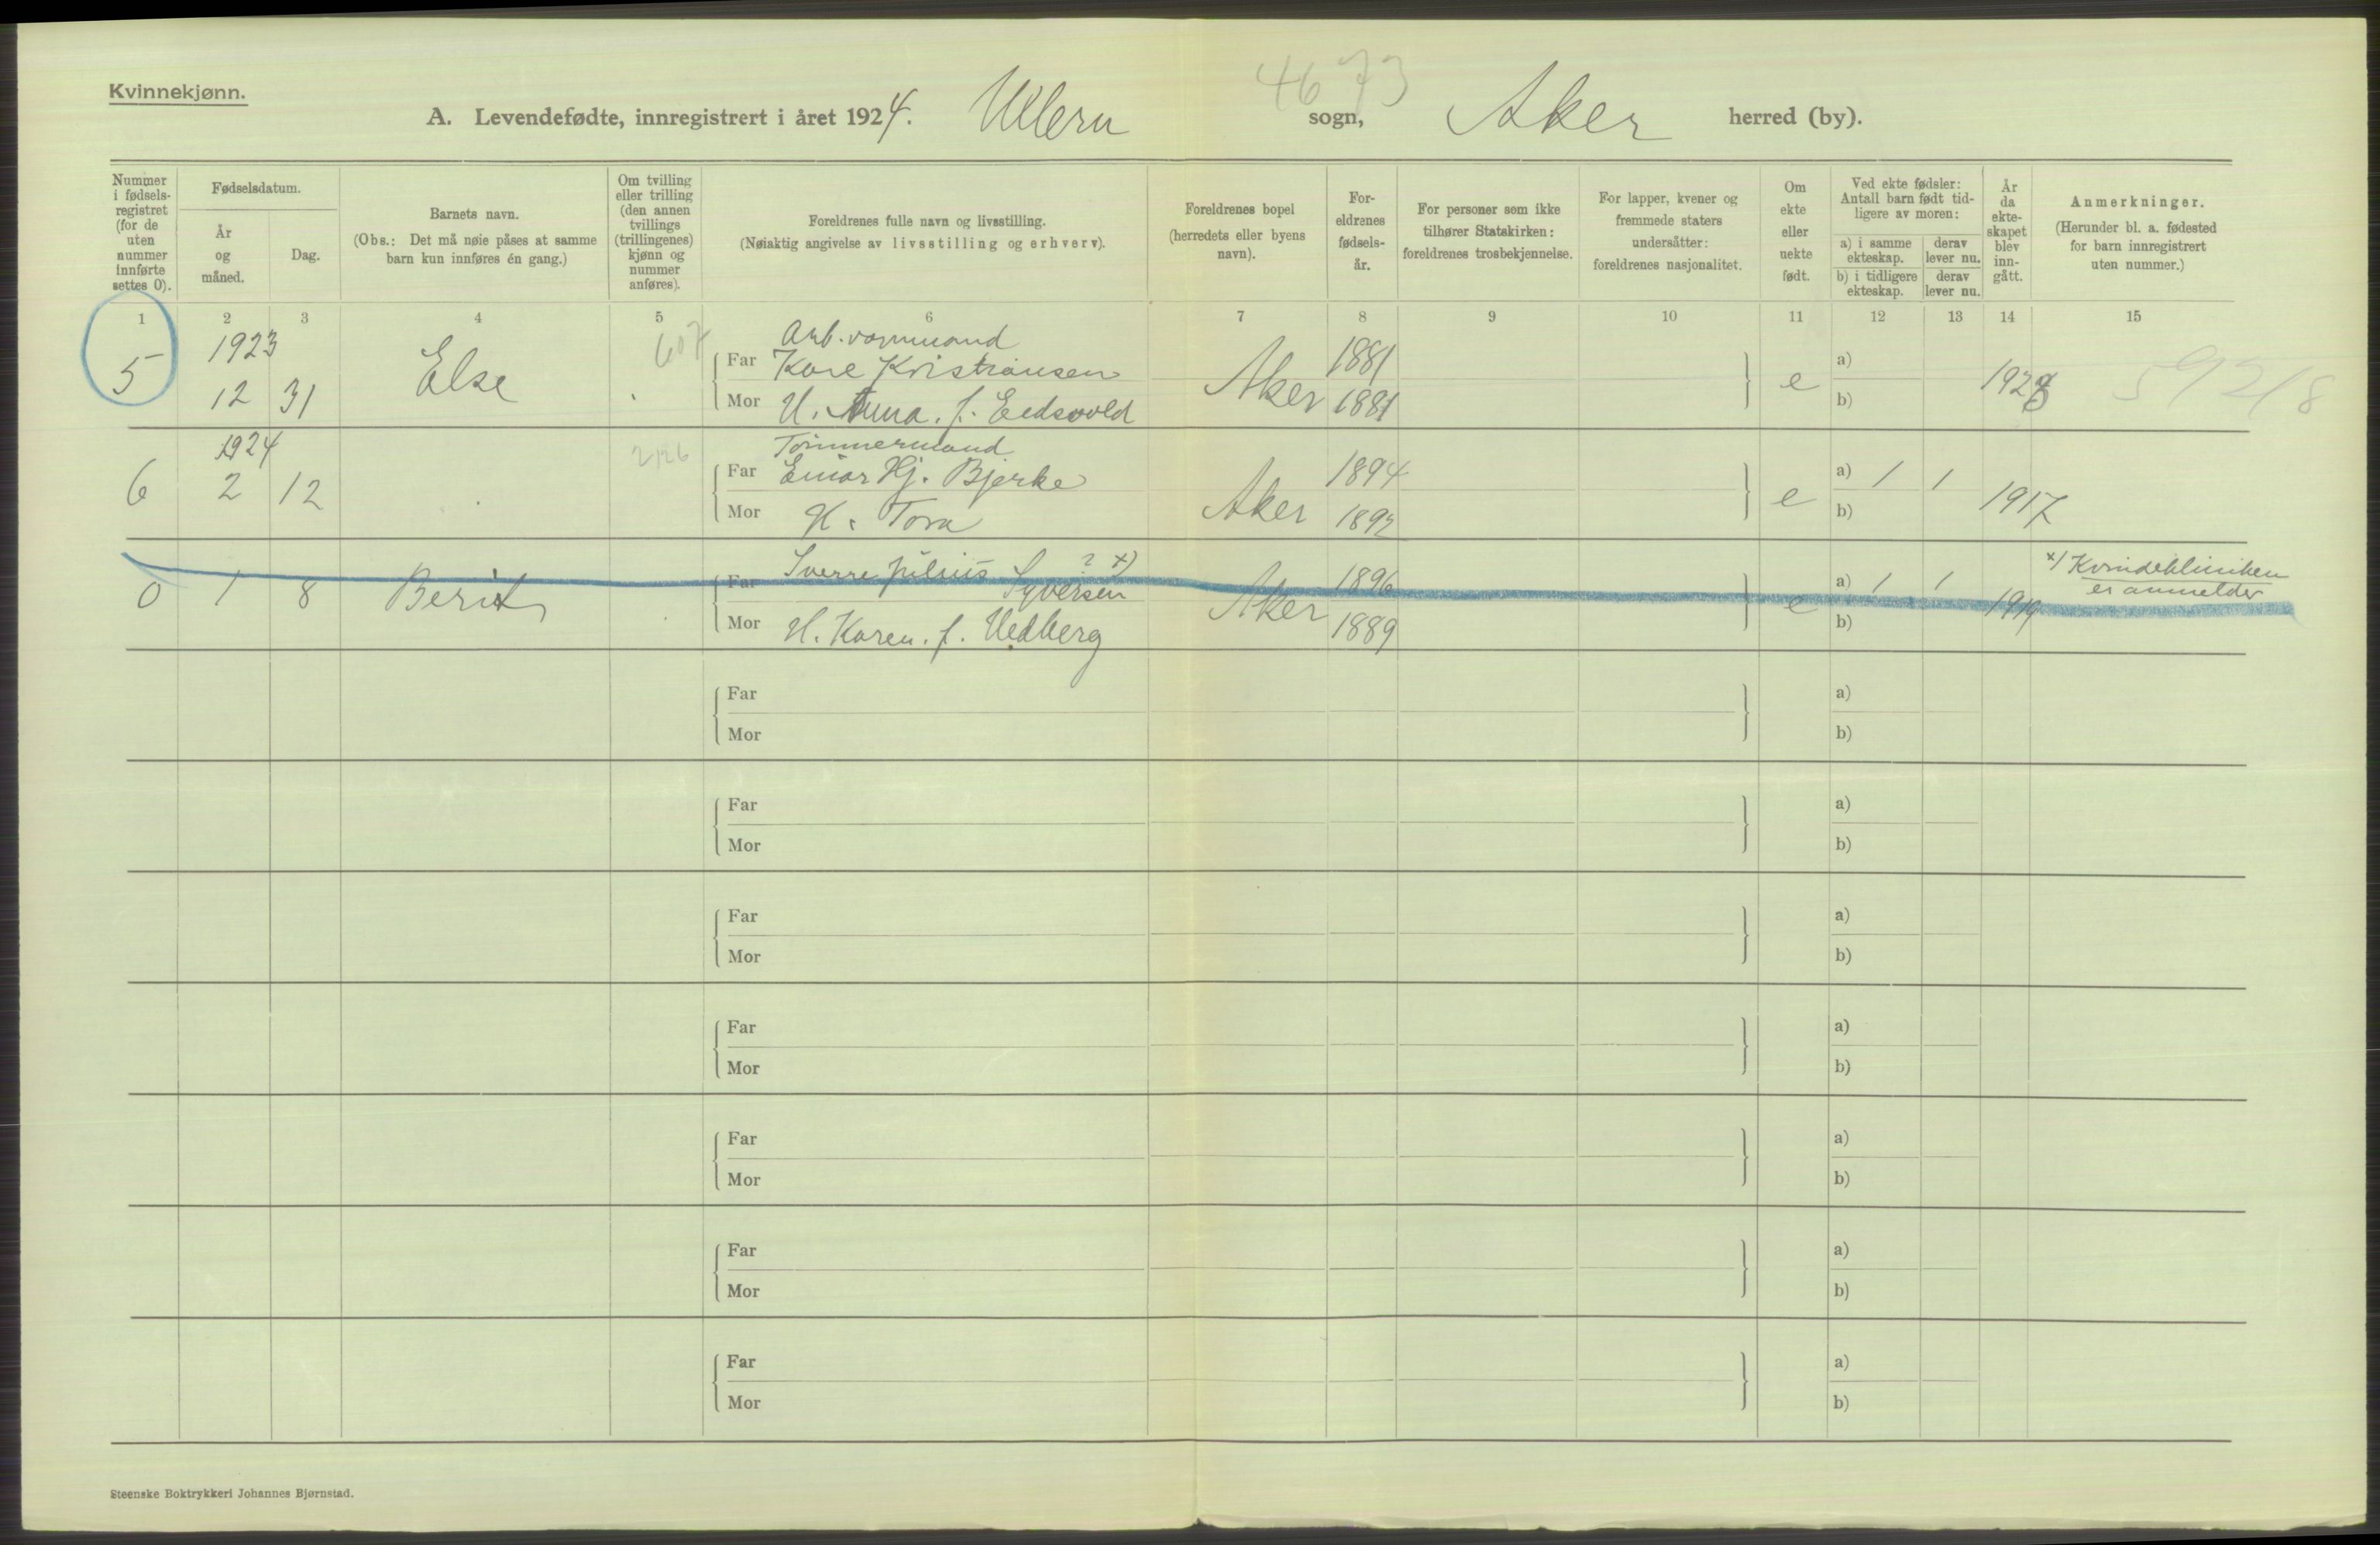 Kvinnekjønn.
4673
A. Levendefødte, innregistrert i året 1924. Ullern sogn, Aker herred (by).
Nummer i fødsels- registret (for de uten nummer innførte settes 0).
Fødselsdatum.
År og måned.
Dag.
Barnets navn.
(Obs.: Det må nøie påses at samme barn kun innføres én gang.)
Om tvilling eller trilling (den annen tvillings (trillingenes) kjønn og nummer anføres).
Foreldrenes fulle navn og livsstilling.
(Nøiaktig angivelse av livsstilling og erhverv).
Foreldrenes bopel (herredets eller byens navn).
For- eldrenes fødsels- år.
For personer som ikke tilhører Statskirken: foreldrenes trosbekjennelse.
For lapper, kvener og fremmede staters undersåtter: foreldrenes nasjonalitet.
Om ekte eller uekte født.
Ved ekte fødsler: Antall barn født tid- ligere av moren:
a) i samme ekteskap. derav lever nu.
b) i tidligere ekteskap. derav lever nu.
År da ekte- skapet blev inn- gått.
Anmerkninger.
(Herunder bl. a. fødested for barn innregistrert uten nummer.)
1 2 3 4 5 6 7 8 9 10 11 12 13 14 15
1923 607 Arb.formand
5 12 31 Else Far Kare Kristiansen Aker 1881 e a) 1923 59218
Mor H. Anna. f. Eidsvold 1881 b)
1924 2126 Tømmermand
6 2 12 Far Einar Hj. Bjerke Aker 1894 e a) 1 1 1917
Mor H. Tora 1892 b)
0 1 8 Berit Far Sverre Julius Syversen ? x) Aker 1896 e a) 1 1 1919 x) Kvindeklinikken
er anmelder
Mor H. Karen. f. Vedberg 1889 b)
Far a)
Mor b)
Far a)
Mor b)
Far a)
Mor b)
Far a)
Mor b)
Far a)
Mor b)
Far a)
Mor b)
Far a)
Mor b)
Steenske Boktrykkeri Johannes Bjørnstad.